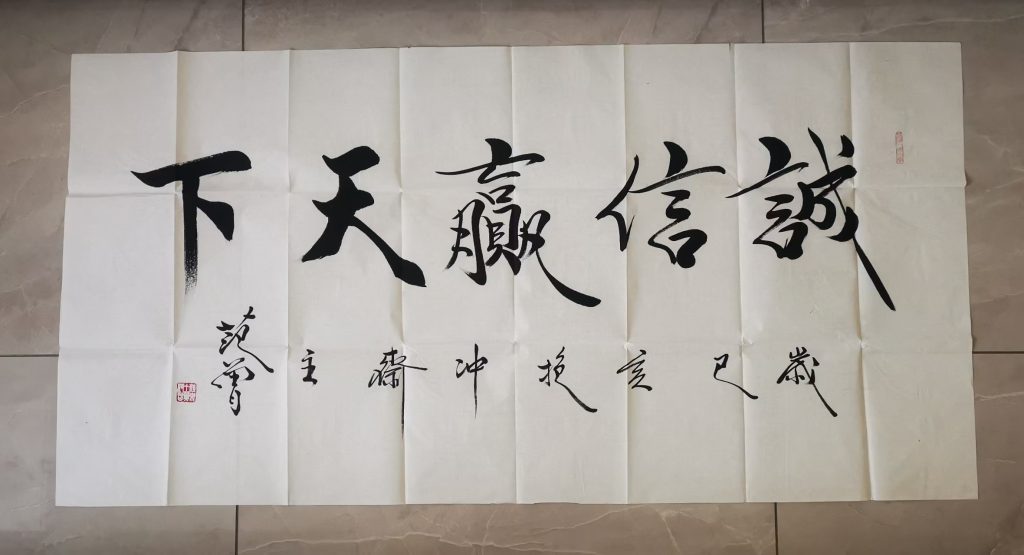 誠信贏天下
歲己亥抱冲齋主
范曾